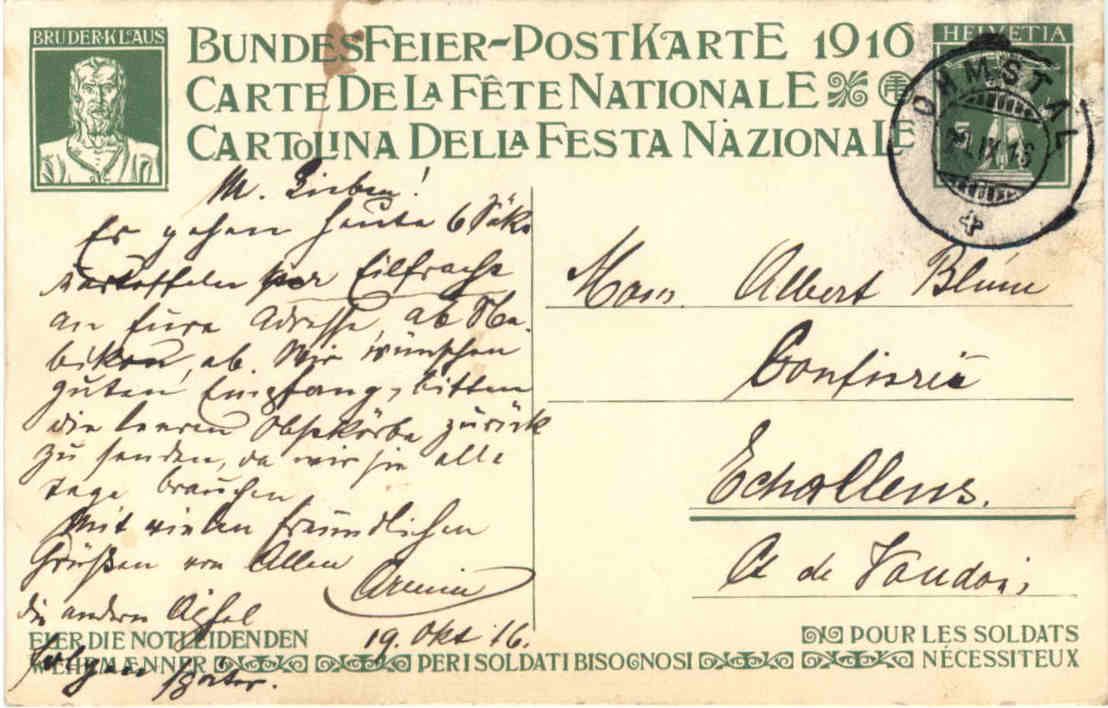 BRUDER-KLAUS
BUNDESFEIER-POSTKARTE 1916
CARTE DE LA FÊTE NATIONALE
CARTOLINA DELLA FESTA NAZIONALE
HELVETIA
5
OHMSTAL
IX.16
M. Lieben!
Es gehen heute 6 Säke
Kartoffeln per Eilfracht
an Eure Adresse, ab Ne-
bikon, ab. Wir wünschen
guten Empfang, bitten
die leeren Obstkörbe zurück
zu senden, da wir sie alle
Tage brauchen
Mit vielen freundlichen
Grüßen von Allen
Armin
die andern Äpfel
folgen später.
19. Okt 16.
Mons. Albert Blum
Confiserie
Echallens.
Ct de Vaud
FUER DIE NOTLEIDENDEN
WEHRMÆNNER
PER I SOLDATI BISOGNOSI
POUR LES SOLDATS
NÉCESSITEUX